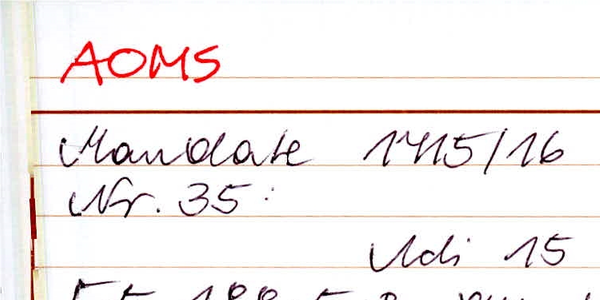 AOMS
Mandate 1715/16
Nr. 35:
Adi 15